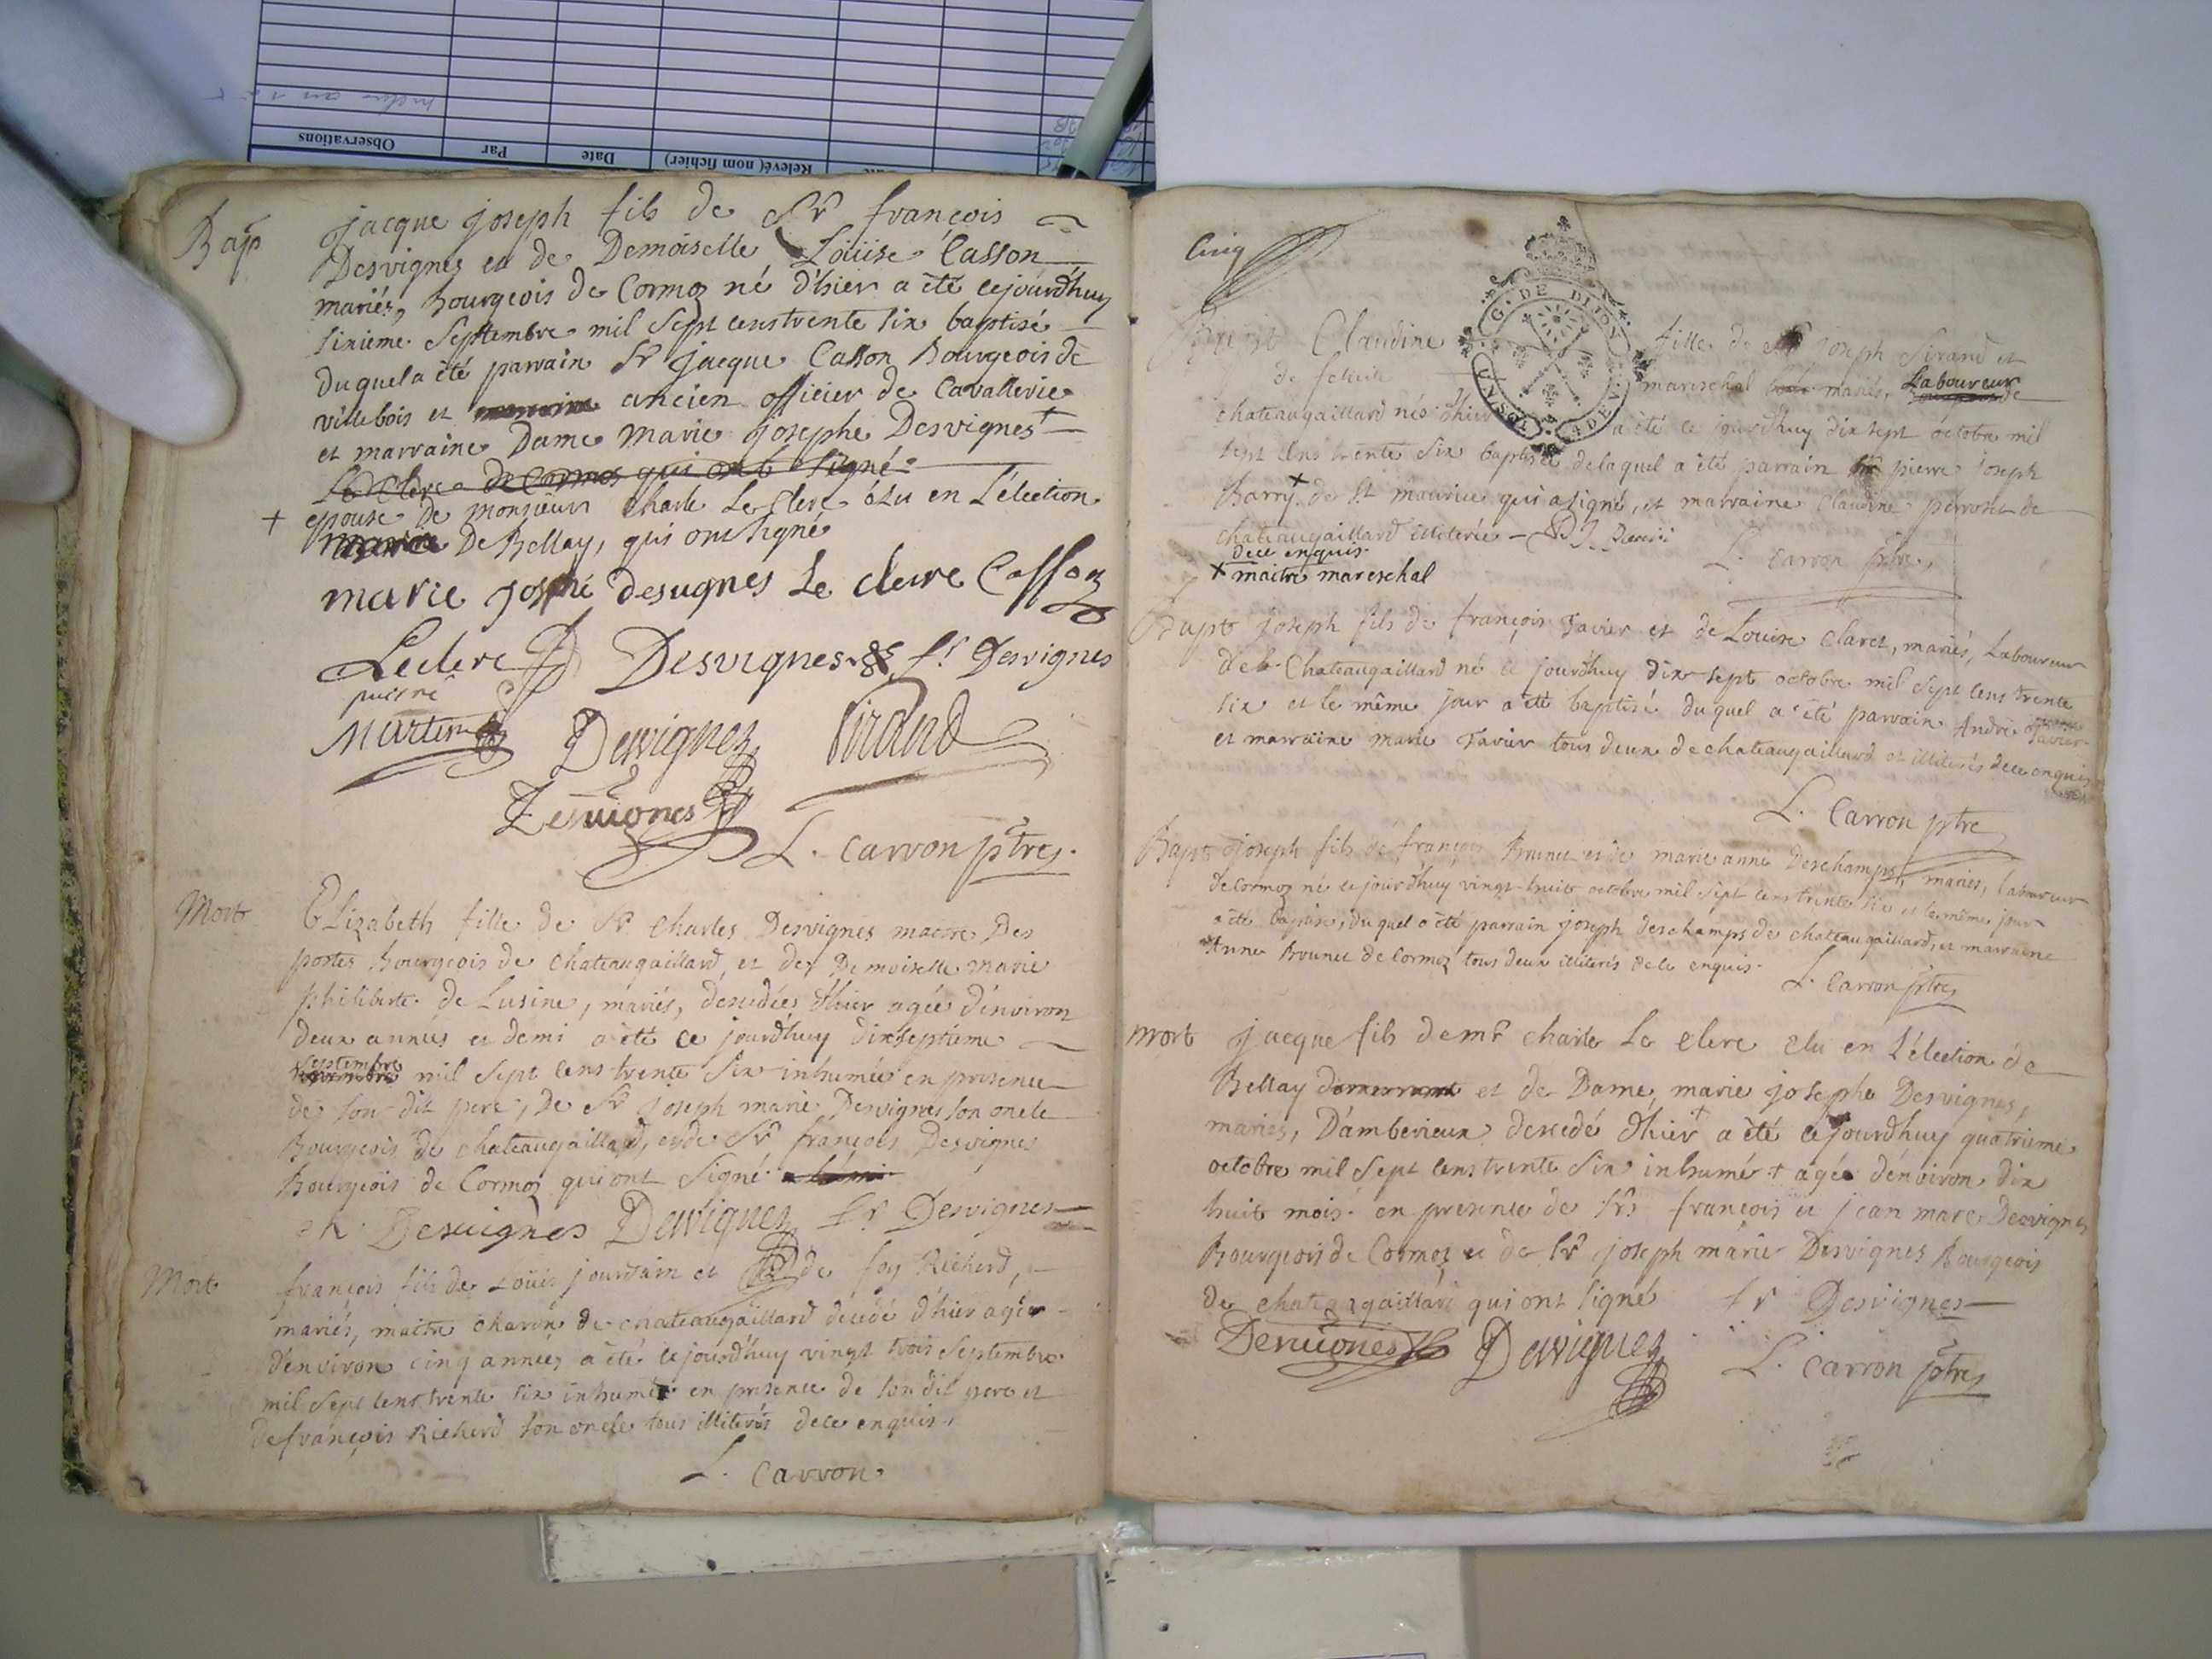 Observations
Par
Date
Relevé( nom fichier)
Bap
jacque joseph fils de Sr françois
Desvignes et de Demoiselle Loüise Casson
mariés, Bourgeois de Cormoz né d'hier a èté cejourdhuy
sixieme Septembre mil Sept cens trente six baptisé
Duquel a èté parrain Sr jacque Casson Bourgeois de
villebois et ancien officier de Cavallerie
et marraine Dame Marie josephe Desvignes +
Le Clerc de Cormos qui ont signé
+ epouse de monsieur charle Le Clerc élu en L'élection
De Bellay, qui ont signé
marie josphé desugnes Le clerc Casson
Leclerc Desvignes fr Desvignes
puisné
Martin Desvignes Sirand
Desvignes
L. Carron ptre
Mort
Elizabeth fille de Sr Charles Desvignes maitre Des
postes Bourgeois de Chateaugaillard, et de Demoiselle marie
philiberte de Lusine, mariés, decedées d'hier agée d'environ
deux années et demi a èté ce jourdhuy dixseptieme
septembre
mil Sept cens trente Six inhumée en presence
de son dit pere, de Sr joseph marie Desvignes son oncle
Bourgeois de chateaugaillard, et de Sr françois Desvignes
Bourgeois de Cormoz qui ont Signé
Desvignes Desvignes fr Desvignes
Mort
françois fils de Loüis jourdain et de foy Richerd,
mariés, maitre charon de chateaugaillard decedé d'hier agée
d'environ cinq années a èté cejourdhuy vingt trois Septembre
mil Sept cens trente six inhumée en presence de son dit pere et
de françois Richerd son oncle tous illiterés de ce enquis,
L. Carron
Cinq
G. DE DIJON
Bapt Claudine fille de joseph Sirand et
de mareschal mariés, Laboureur
chateaugaillard née d'hier a èté ce jourdhuy dix sept octobre mil
sept cens trente six baptisée delaquel a èté parrain pierre joseph
Barry + de St maurice qui a signé, et marraine Claudine perront de
chateaugaillard illiterée
dece enquis
L. Carron ptre
+ maitre mareschal
Bapt joseph fils de françois Favier et de Louise Claret, mariés, Laboureur
de Chateaugaillard né ce jourdhuy dix sept octobre mil sept cens trente
six et le même jour a èté baptisé duquel a èté parrain André Favier
et marraine marie Favier tous deux de chateaugaillard et illiterés de ce enquis
L. Carron ptre
Bapt joseph fils de françois Brunet et de marie anne Deschamps, mariés, laboureur
de Cormoz né cejourdhuy vingt-huit octobre mil sept cens trente six et le même jour
a èté baptisé, duquel a èté parrain joseph deschamps de chateaugaillard, et marraine
Anne Brunet de Cormoz tous deux illiterés de ce enquis.
L. Carron ptre
mort jacque fils de mr charles Le Clerc elu en L'élection de
Bellay et de Dame, marie josephe Desvignes,
mariés, D'amberieux decedé d'hier a èté cejourdhuy quatrieme
octobre mil Sept cens trente Six inhumér + agée d'environ dix
huit mois en presence de Srs françois et jean marc Desvignes
Bourgeois de Cormoz et de Sr joseph marie Desvignes Bourgeois
de chateaugaillard qui ont signé fr Desvignes
Desvignes Desvignes L. Carron ptre